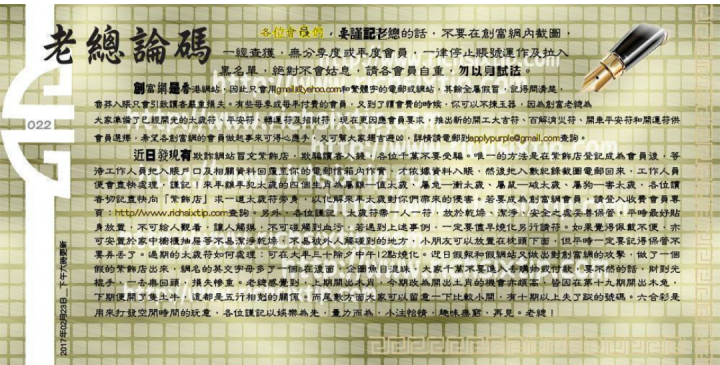 老總論碼
各位會員們，要謹記老總的話，不要在創富網內截圖，
一經查獲，無分季度或年度會員，一律停止賬號運作及拉入
黑名單，絕對不會姑息，請各會員自重，勿以身試法。
創富網是香港網站，因此只會用gmail或yahoo.com和繁體字的電郵或網站，其餘全屬假冒，記得問清楚，
魯莽入賬只會引致讀者嚴重損失。有些每季或每年付費的會員，又到了續會費的時候，你可以不揀玉器，因為創富老總為
大家準備了已經開光的太歲符、平安符、轉運符及招財符，現在更因應會員要求，推出新的開工大吉符、百解消災符、開車平安符和開運符供
會員選擇，希望各創富網的會員做起事來可得心應手，又可幫大家趨吉避凶，詳情請電郵到applypurple@gmail.com查詢。
近日發現有欺詐網站冒充紫飾店，欺騙讀者入錢，各位千萬不要受騙。唯一的方法是在紫飾店登記成為會員後，等
待工作人員把入賬戶口及相關資料回覆至你的電郵信箱內作實，才依據資料入賬，然後把入數紀錄截圖電郵回來，工作人員
便會盡快處理，謹記！來年雞年犯太歲的四個生肖為屬雞一值太歲、屬兔一衝太歲、屬鼠一破太歲、屬狗一害太歲，各位讀
者切記盡快向「紫飾店」求一道太歲符旁身，以化解來年太歲對你們帶來的侵害。若要成為創富網會員，請登入收費會員專
頁：http://www.richsixtip.com查詢。另外，各位謹記，太歲符帶一人一符，放於乾燥、潔淨、安全之處妥善保管，平時最好貼
身放置，不可給人觀看，讓人觸摸，不可碰觸到血污，若遇到上述事例，一定要儘早燒化另行請符。如果覺得佩戴不便，亦
可安置於家中櫥櫃抽屜等不易潔淨乾燥，不易被外人觸碰到的地方，小朋友可以放置在枕頭下面，但平時一定要記得保管不
要弄丟了。過期的太歲符如何處理：可在大年三十除夕午夜12點燒化。近日假報和假網站又做出對創富網的攻擊，做了一個
假的紫飾店出來，網名的英文字母多了一個s在後面，企圖魚目混珠，大家千萬不要誤入去購物或付款，要不然的話，財到光
棍手，一去無回頭，損失慘重。老總感覺到，上期開出木肖，今期改為開出土肖的機會亦頗高，皆因在第十九期開出木兔，
下期便開了隻土牛，這都是五行相剋的關係，而尾數方面大家可以留意一下比較小開，有十期以上失了蹤的號碼。六合彩是
用來打發空閒時間的玩意，各位謹記以娛樂為先，量力而為，小注怡情，趣味無窮，再見。老總！
022
2017年02月23日__下午六時更新